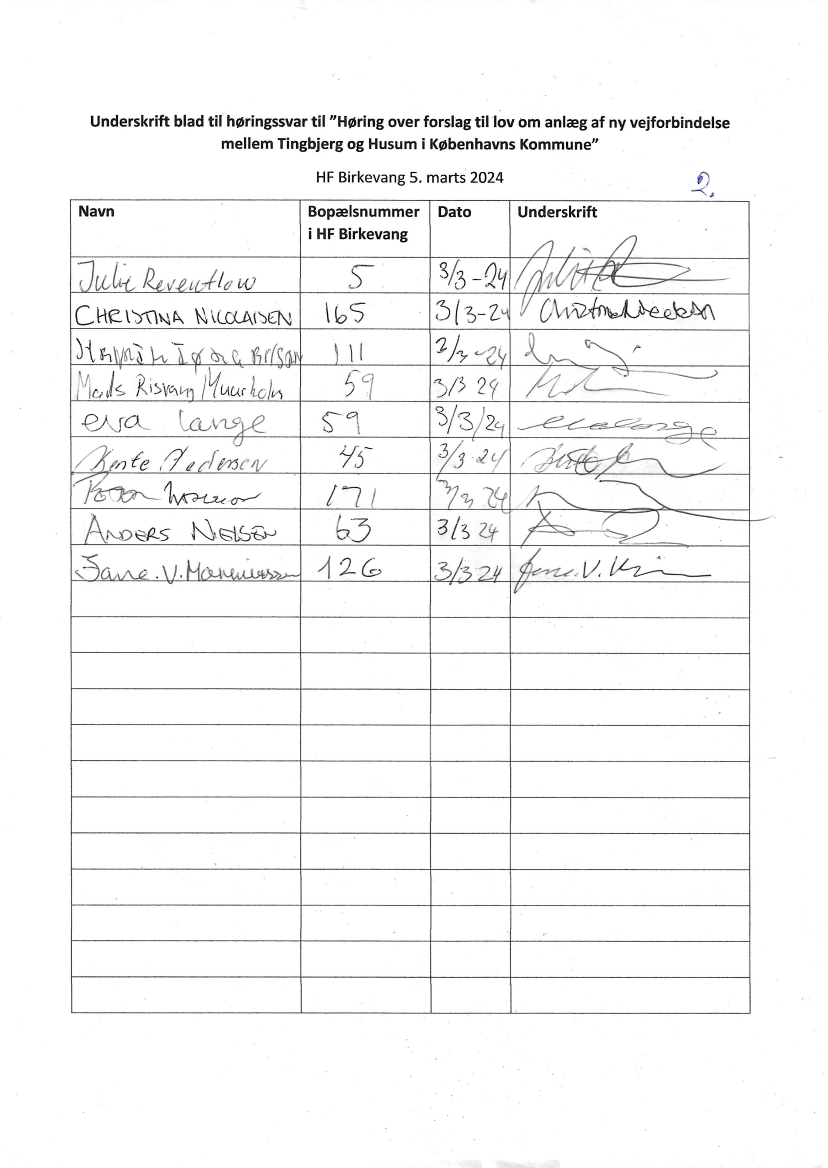 Underskrift blad til høringssvar til ”Høring over forslag til lov om anlæg af ny vejforbindelse
mellem Tingbjerg og Husum i Københavns Kommune”
HF Birkevang 5. marts 2024
2.
Navn Bopælsnummer i HF Birkevang Dato Underskrift
Julie Reventlow 5 3/3-24
CHRISTINA NICOLAISEN 165 3/3-24
111 3/3-24
Mads Risvang 59 3/3 24
eva Lange 59 3/3/24 eva lange
Pedersen 45 3/3-24
171 24
ANDERS NIELSEN 63 3/3 24
Jane.V. 126 3/3 24 Jane.V.